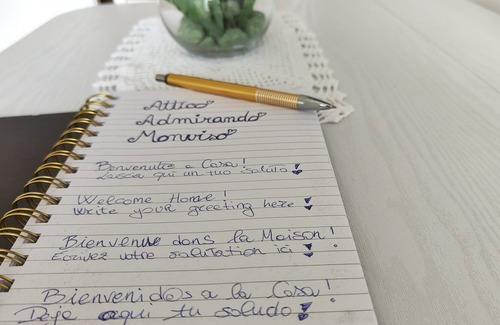 Attico
Admirando
Monviso
Benvenuti a Casa!
Lascia qui un tuo saluto
Welcome Home!
Write your greeting here
Bienvenue dans la Maison!
Ecrivez votre salutation ici
Bienvenidos a la Casa!
Deje aqui tu saludo